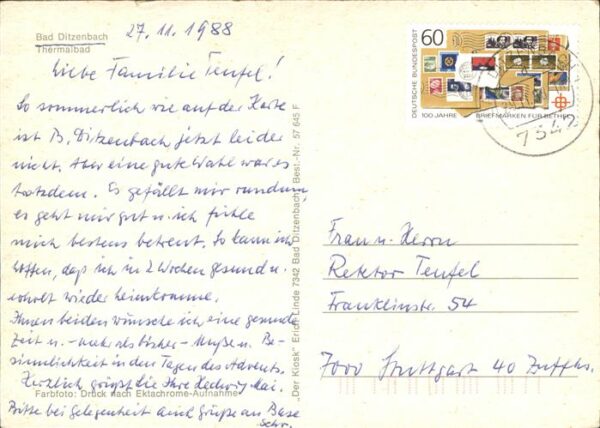 Bad Ditzenbach
Thermalbad
27.11.1988
Liebe Familie Teufel!
So sommerlich wie auf der Karte
ist B. Ditzenbach jetzt leider
nicht. Aber eine gute Wahl war es
trotzdem. Es gefällt mir rundum
es geht mir gut u. ich fühle
mich bestens betreut. So kann ich
hoffen, daß ich in 2 Wochen gesund u.
erholt wieder heimkomme.
Ihnen beiden wünsche ich eine gesunde
Zeit u. - mehr als bisher - Muße u. Be-
sinnlichkeit in den Tagen des Advents.
Herzlich grüßt die Ihre Hedwig Mai.
Farbfoto: Druck nach Ektachrome-Aufnahme
Bitte bei Gelegenheit auch Grüße an Base
Schw.
"Der Kiosk" Erich Linde 7342 Bad Ditzenbach Best.-Nr. 57 645 F
60
DEUTSCHE BUNDESPOST
100 JAHRE BRIEFMARKEN FÜR BETHEL
7342
Frau u. Herrn
Rektor Teufel
Franklinstr. 54
7000 Stuttgart 40 Zuffhs.